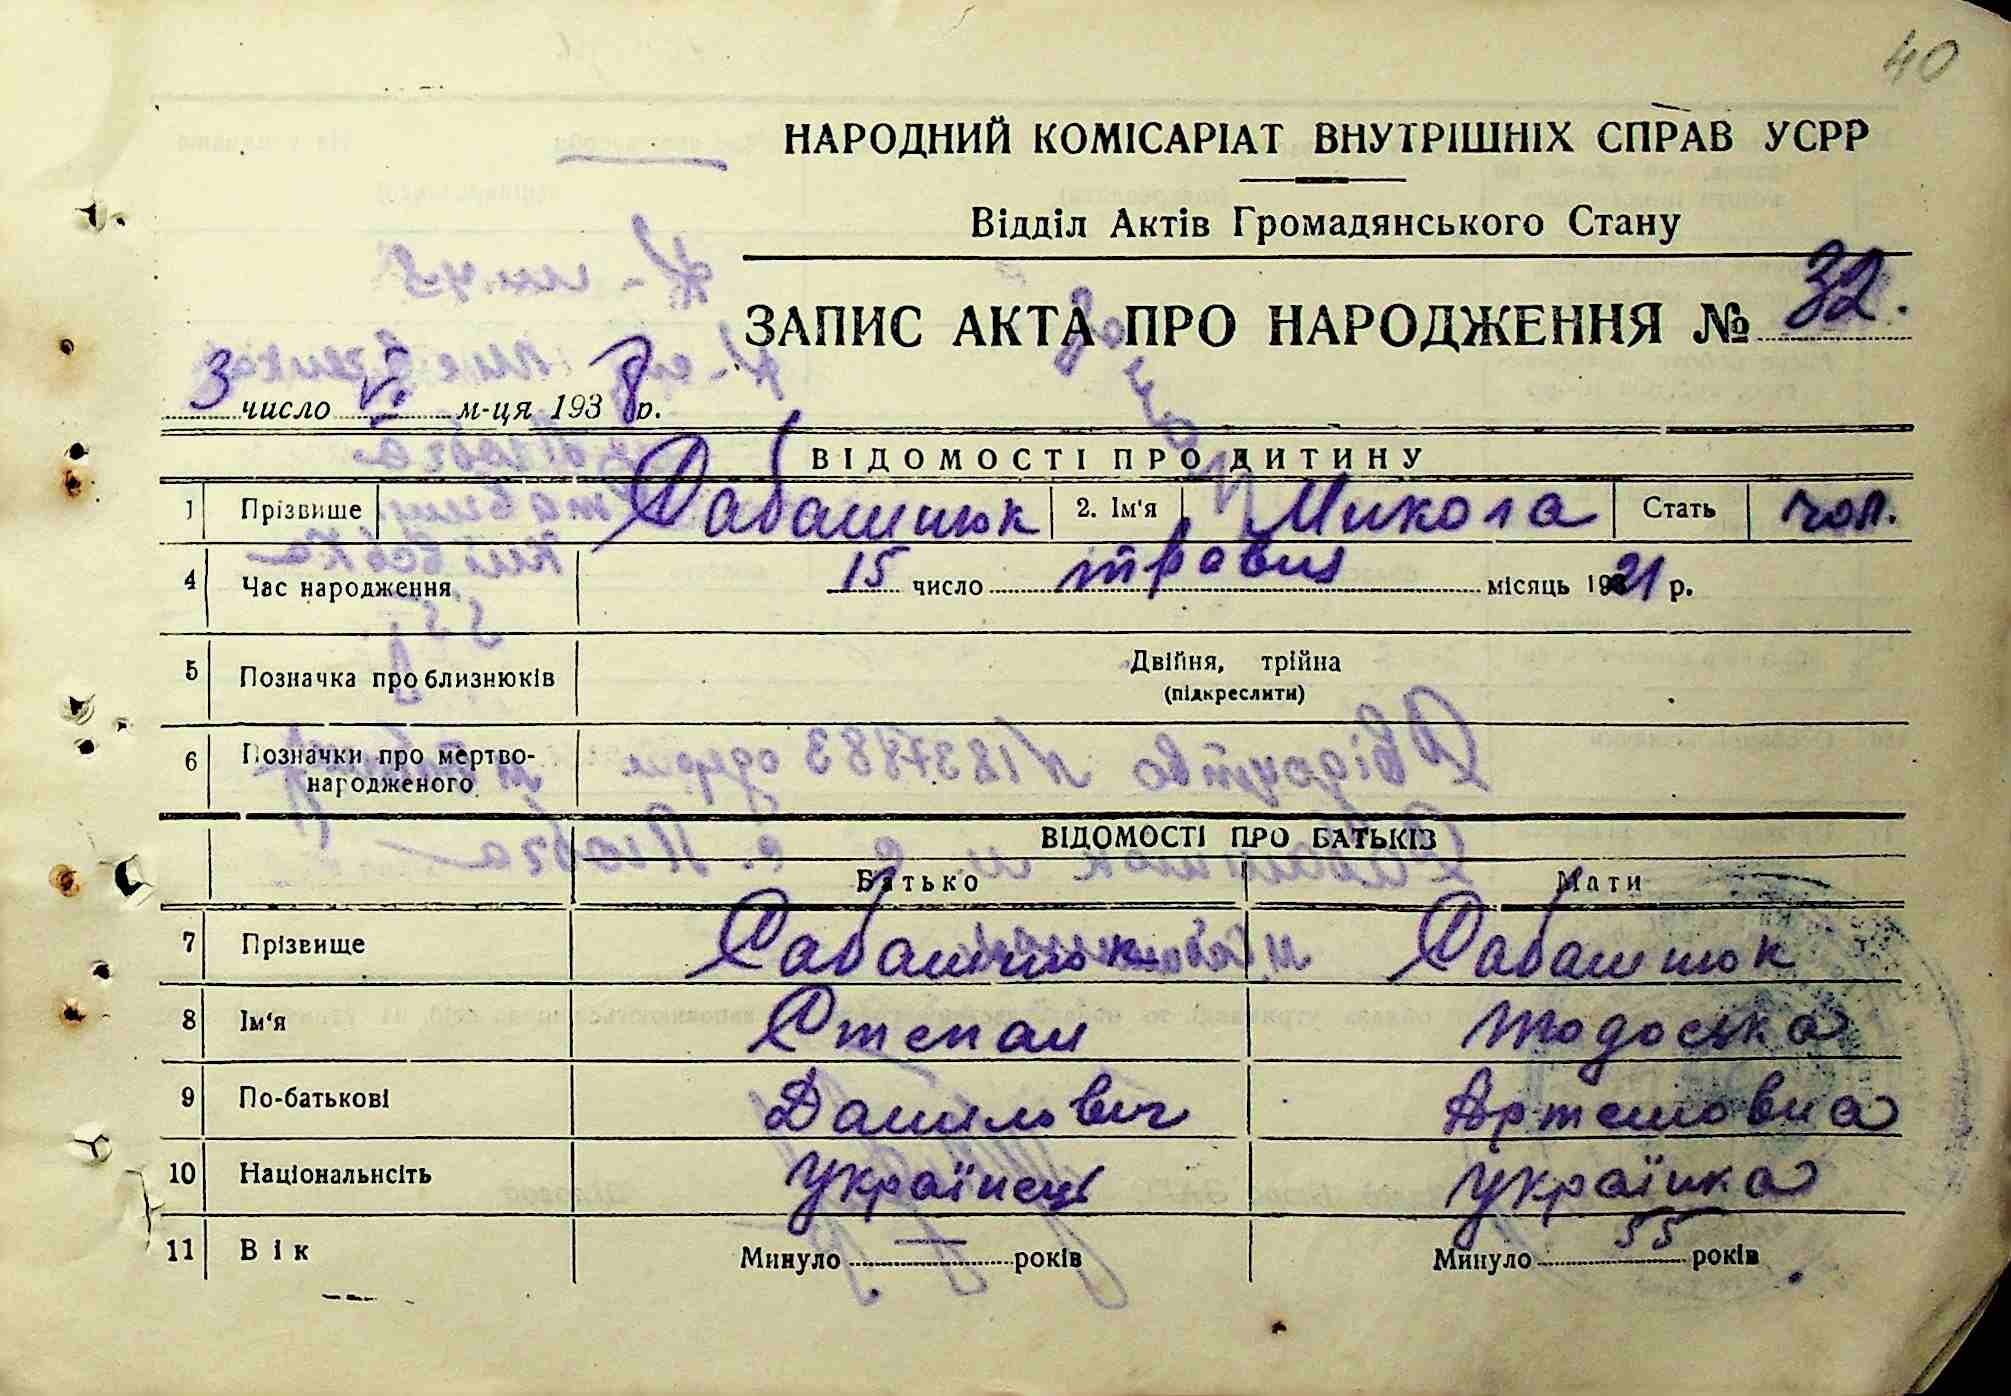 40
НАРОДНИЙ КОМІСАРІАТ ВНУТРІШНІХ СПРАВ УСРР
Відділ Актів Громадянського Стану
ЗАПИС АКТА ПРО НАРОДЖЕННЯ № 32.
3 число VI м-ця 1938 р.
ВІДОМОСТІ ПРО ДИТИНУ
1 Прізвище Сабашнюк 2. Ім'я Микола Стать чол.
4 Час народження 15 число травня місяць 1921 р.
5 Позначка про близнюків Двійня, трійна
(підкреслити)
6 Позначки про мертво-
народженого
ВІДОМОСТІ ПРО БАТЬКІВ
Батько Мати
7 Прізвище Сабашнюк Сабашнюк
8 Ім'я Степан Тодоська
9 По-батькові Данилович Артемовна
10 Національнсіть Українець Українка
11 Вік Минуло — років Минуло 55 років